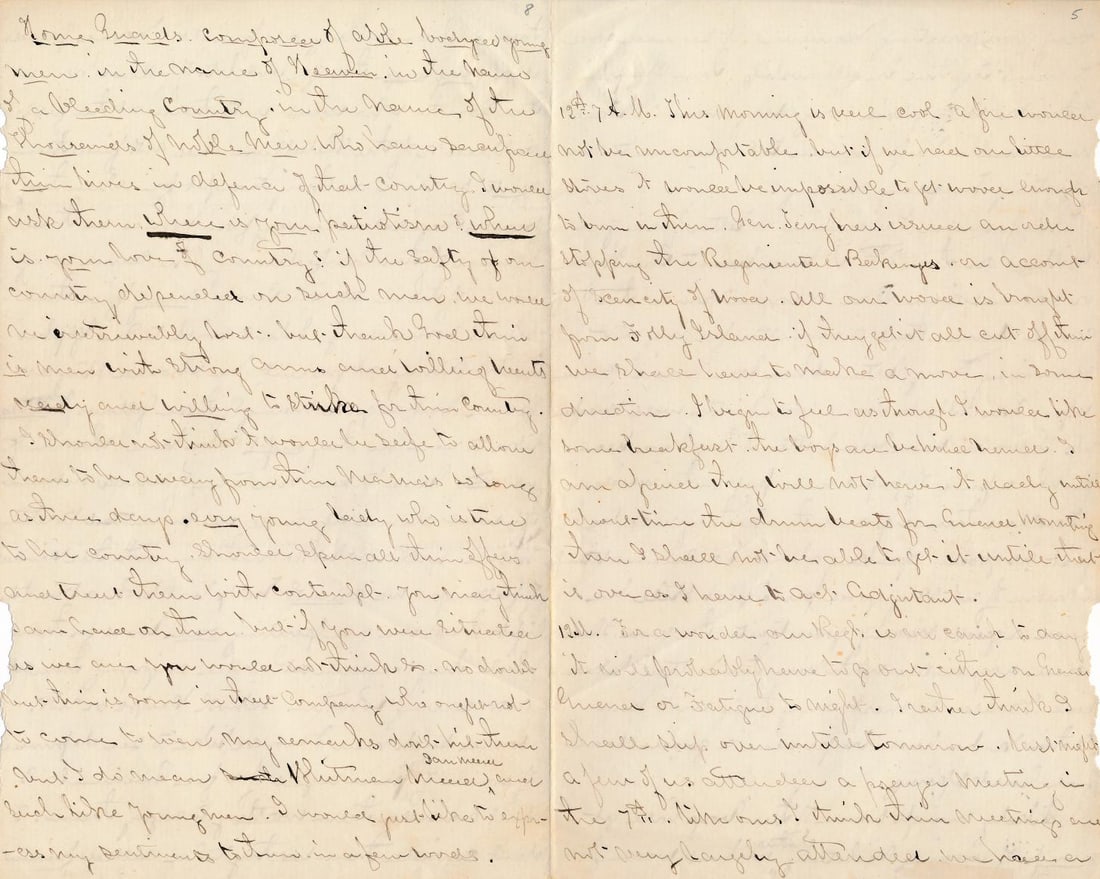 8
Home Guards. composed of able bodyed young
men. in the name of Heaven. in the name
of a bleeding Country. in the name of the
thousands of noble men. who have sacrificed
thier lives in defence of that country. I would
ask them. where is your patriotism? where
is your love of country? if the safty of our
country depended on such men. we would
be iretrievably lost. but thank God thier
is men with strong arms and willing hearts
ready and willing to strike for thier country.
I should not think it would be safe to allow
them to be away from thier Mama's so long
as three days. evry young lady who is true
to her country should spurn all thier offers
and treat them with contempt. You may think
I am hard on them. but if you were situated
as we are you would not think so. no doubt
but thier is some in that Company who ought not
to come to war. my remarks dont hit them
but I do mean Whitman Mead, Dan Mead and
such like young men. I would just like to expr-
-ess my sentiments to them in a few words.
5
12th. 7 A.M. This morning is real cool. a fire would
not be uncomfortable. but if we had our little
stoves it would be impossible to get wood enough
to burn in them. Gen. Terry has issued an order
stopping the Regimental Bakerys. on account
of scencity of wood. all our wood is brought
from Folly Island. if they get it all cut off thier
we shall have to make a move, in some
direction. I begin to feel as though I would like
some breakfast. the boys are behind hand. I
am afraid they will not have it ready until
about time the drum beats for Guard Mounting
then I shall not be able to get it until that
is over as I have to act Adjutant.
12M. For a wonder our Regt. is in camp to day
it will probably have to go out either on Grand
Guard or Fatigue to night. I rather think I
shall slip over untill tomorrow. Last night
a few of us attended a prayer meeting in
the 7th. like ours I think thier meetings are
not very largely attended we have a